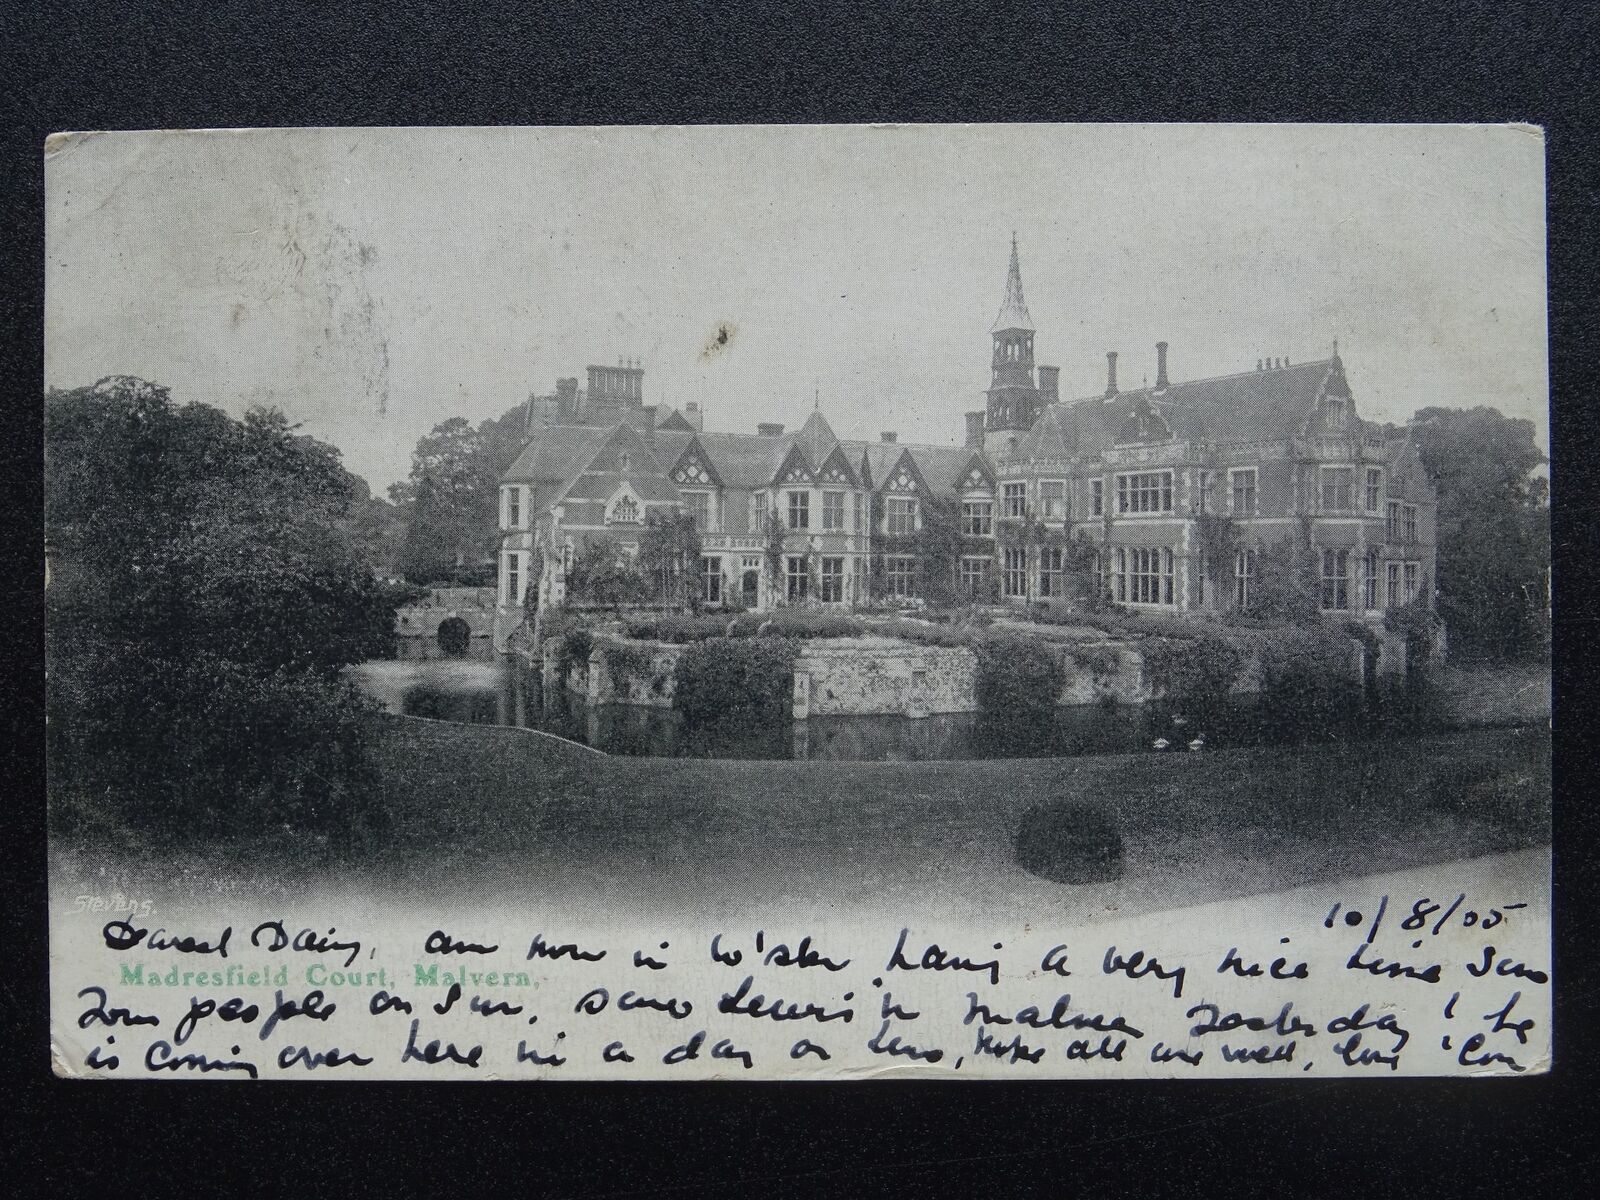 Stevens.
10/8/05
Dearest Daisy, am now in Wo'ster having a very nice time Saw
Madresfield Court, Malvern,
your people on Sun, saw Lewis in Malvern yesterday! he
is coming over here in a day or two, Hope all are well, love